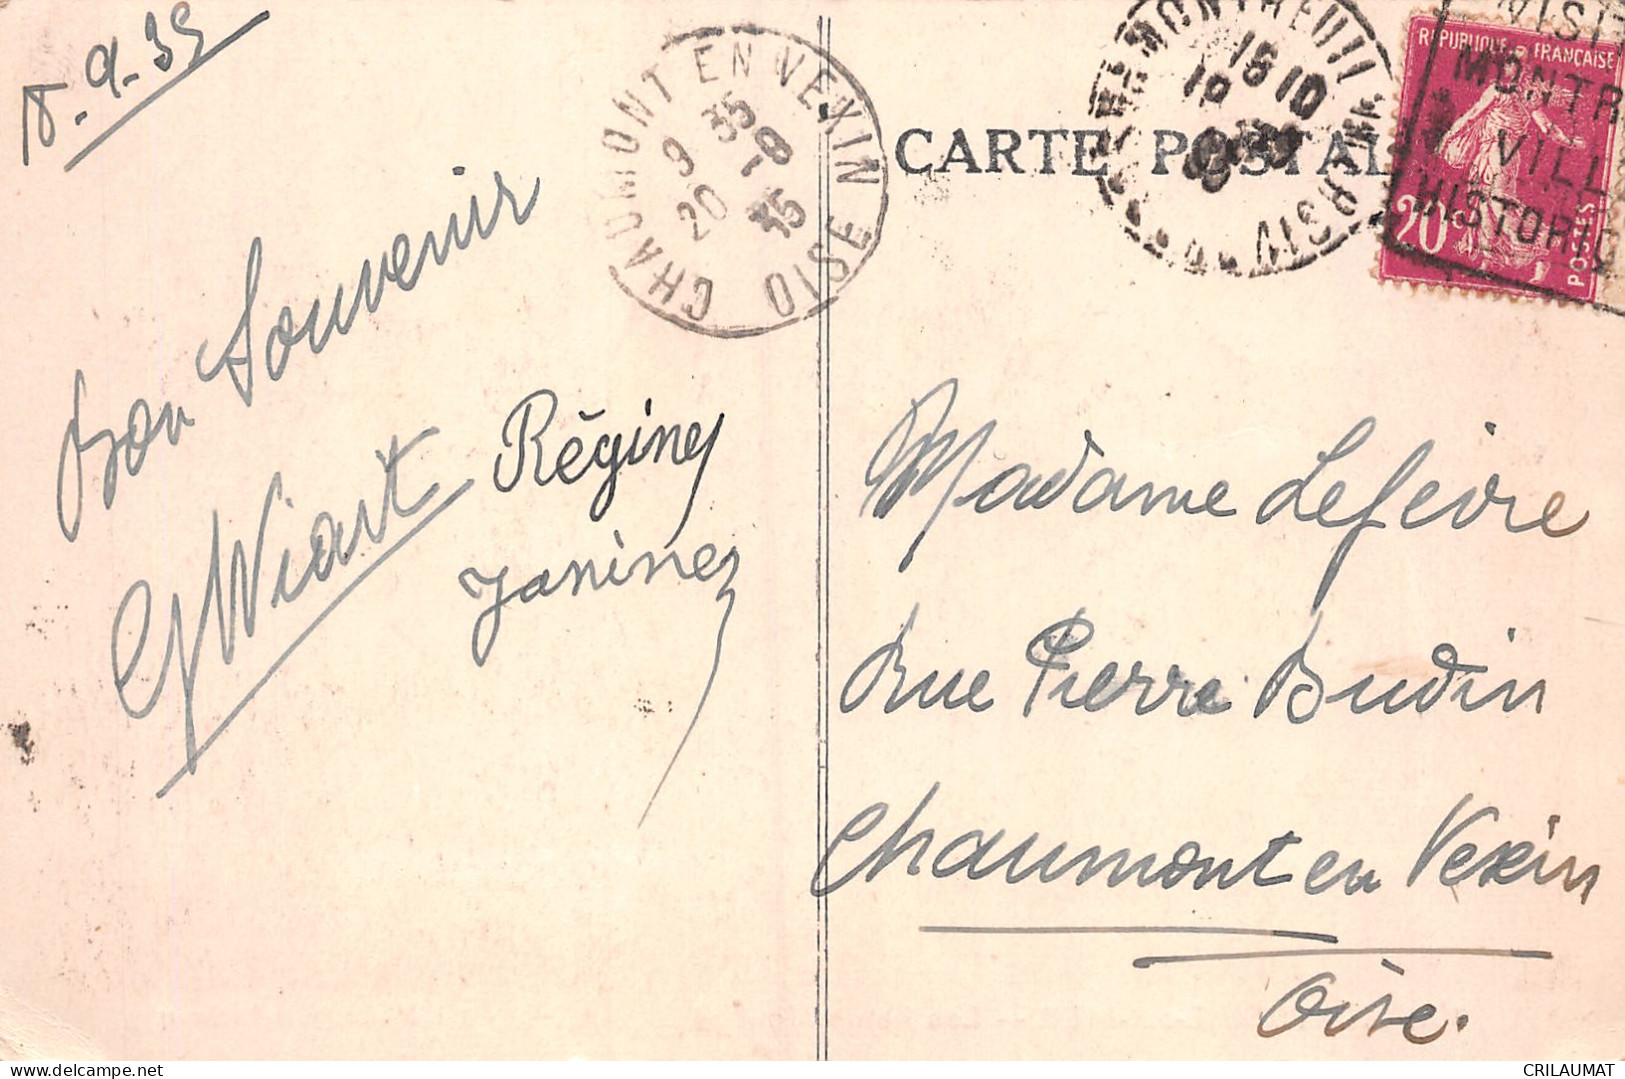 8-9-35
Bon Souvenir
GWiart
Régine
Janine
CHAUMONT EN VEXIN
OISE
9 35
20
9
35
CARTE POSTALE
MONTREUIL
15 10
VISIT
MONTR
VILL
HISTORI
REPUBLIQUE FRANÇAISE
20c
POSTES
Madame Lefevre
Rue Pierre Budin
Chaumont en Vexin
Oise.
CRILAUMAT